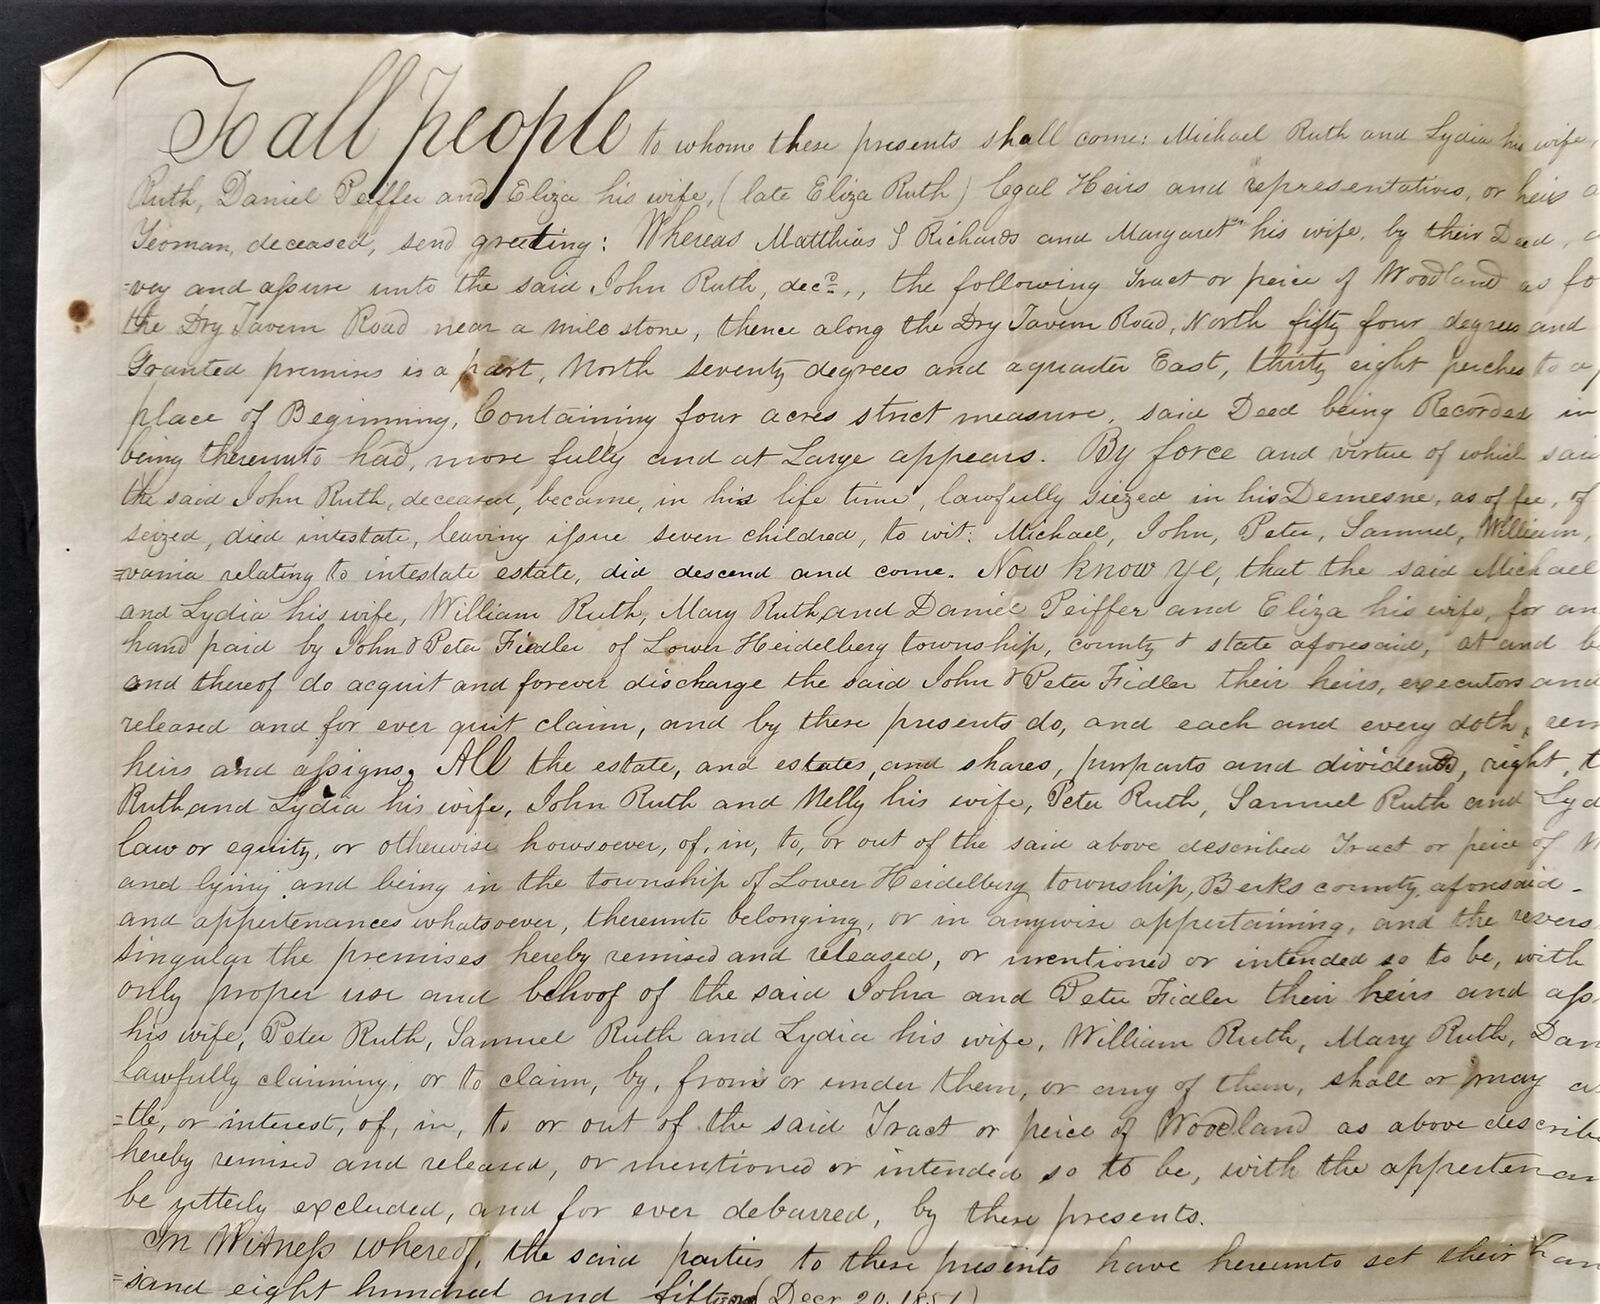 To all people to whome these presents shall come: Michael Ruth and Lydia his wife,
Ruth, Daniel Peiffer and Eliza his wife, (late Eliza Ruth) Legal Heirs and representatives, or heirs
Yeoman, deceased, send greeting: Whereas Matthias S Richards and Margaret his wife, by their Deed,
=vey and assure unto the said John Ruth, decd., the following Tract or peice of Woodland as fo
the Dry Tavern Road near a mile stone, thence along the Dry Tavern Road, North fifty four degrees and
Granted premises is a part, North seventy degrees and a quarter East, thirty eight perches to a
place of Beginning, Containing four acres strict measure, said Deed being Recorded in
being thereunto had, more fully and at Large appears. By force and virtue of which sai
the said John Ruth, deceased, became, in his life time, lawfully siezed in his Demesne, as of fee, of
seized, died intestate, leaving issue seven children, to wit: Michael, John, Peter, Samuel, William,
=vania relating to intestate estate, did descend and come. Now know ye, that the said Michael
and Lydia his wife, William Ruth, Mary Ruth and Daniel Peiffer and Eliza his wife, for an
hand paid by John & Peter Fiedler of Lower Heidelberg township, county & state aforesaid, at and be
and thereof do acquit and forever discharge the said John & Peter Fidler their heirs, executors and
released and for ever quit claim, and by these presents do, and each and every doth, rem
heirs and assigns, All the estate, and estates, and shares, purparts and dividends, right, t
Ruth and Lydia his wife, John Ruth and Nelly his wife, Peter Ruth, Samuel Ruth and Lyd
law or equity, or otherwise howsoever, of, in, to, or out of the said above described Tract or peice of W
and lying and being in the township of Lower Heidelberg township, Berks county, aforesaid -
and appertenances whatsoever, thereunto belonging, or in anywise appertaining, and the revers
singular the premises hereby remised and released, or mentioned or intended so to be, with
only proper use and behoof of the said John and Peter Fidler their heirs and ass
his wife, Peter Ruth, Samuel Ruth and Lydia his wife, William Ruth, Mary Ruth, Dan
lawfully claiming, or to claim, by, from or under them, or any of them, shall or may a
=tle, or interest, of, in, to or out of the said Tract or peice of Woodland as above describe
hereby remised and released, or mentioned or intended so to be, with the appertenan
be utterly excluded, and for ever debarred, by these presents.
In Witness whereof, the said parties to these presents have hereunto set their han
=sand eight hundred and fifty (Decr 20. 1851)